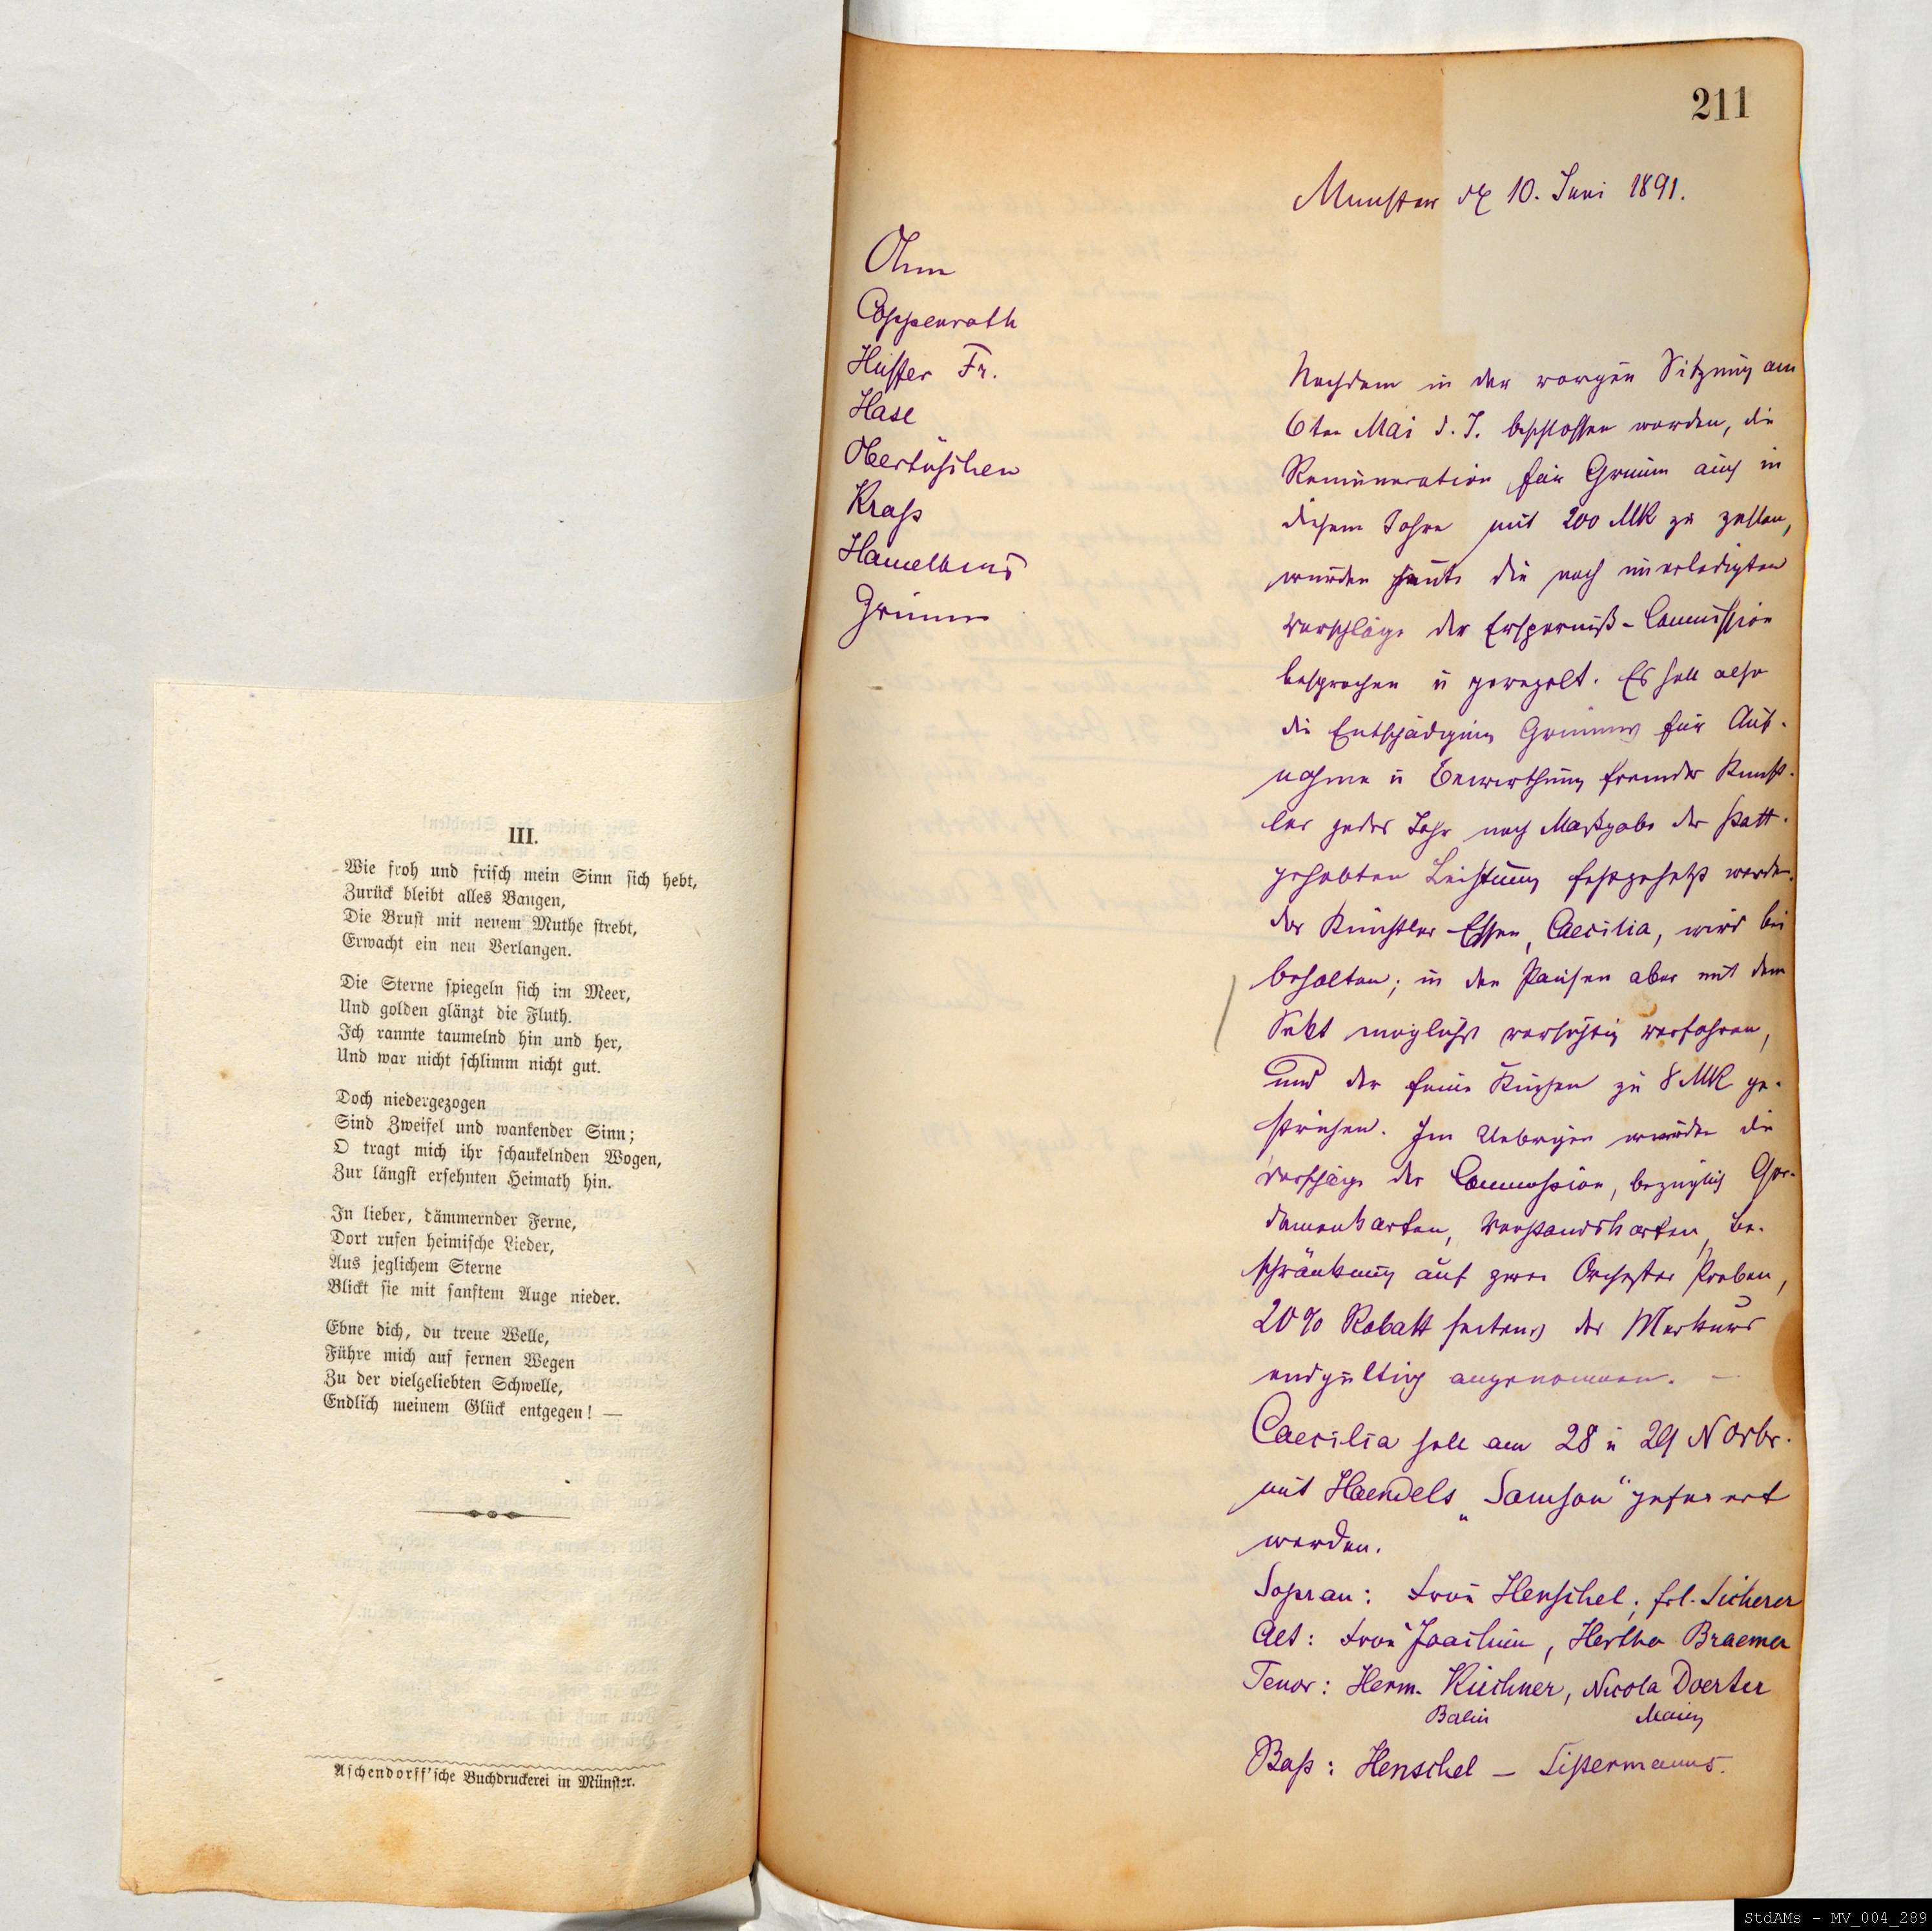 III.
Wie froh und frisch mein Sinn sich hebt,
Zurück bleibt alles Bangen,
Die Brust mit neuem Muthe strebt,
Erwacht ein neu Verlangen.
Die Sterne spiegeln sich im Meer,
Und golden glänzt die Fluth.
Ich rannte taumelnd hin und her,
Und war nicht schlimm nicht gut.
Doch niedergezogen
Sind Zweifel und wankender Sinn;
O tragt mich ihr schaukelnden Wogen,
Zur längst ersehnten Heimath hin.
In lieber, dämmernder Ferne,
Dort rufen heimische Lieder,
Aus jeglichem Sterne
Blickt sie mit sanftem Auge nieder.
Ebne dich, du treue Welle,
Führe mich auf fernen Wegen
Zu der vielgeliebten Schwelle,
Endlich meinem Glück entgegen! —
Aschendorff'sche Buchdruckerei in Münster.
211
Munster d 10. Juni 1891.
Ohm
Coppenrath
Hüffer Fr.
Hase
Obertüschen
Kraß
Hamelbeus
Grimm
Nachdem in der vorigen Sitzung am
6ten Mai d. J. beschlossen worden, die
Remuneration für Grimm auch in
diesem Jahre mit 200 MK zu zahlen,
wurden heute die noch unerledigten
Vorschläge der Ersparniß-Commission
besprochen u geregelt. Es soll also
die Entschädigung Grimms für Auf-
nahme u Bewirthung fremder Kunst-
ler jedes Jahr nach Maßgabe der statt-
gehabten Leistung festgesetzt werden.
das Künstler Essen, Caecilia, wird bei
behalten; in den Pausen aber mit dem
Sekt moglichst vorsichtig verfahren,
und der feine Kuchen zu 8 MK ge-
strichen. Im Uebrigen wurden die
Vorschläge der Commission, bezuglich Gar-
damenkarten, Vorstandskarten, Be-
schränkung auf zwei Orchester Proben,
20% Rabatt seitens des Merkurs
endgultig angenommen. —
Caecilia soll am 28 u 29 Novbr.
mit Haendels „Samson" gefeiert
werden.
Sopran: Frau Henschel; frl. Sicherer
Alt: Frau Joachim, Hertha Braemer
Tenor: Herm. Kirchner, Nicola Doerter
Balin Mainz
Baß: Henschel — Sistermanns.
StdAMs - MV_004_289